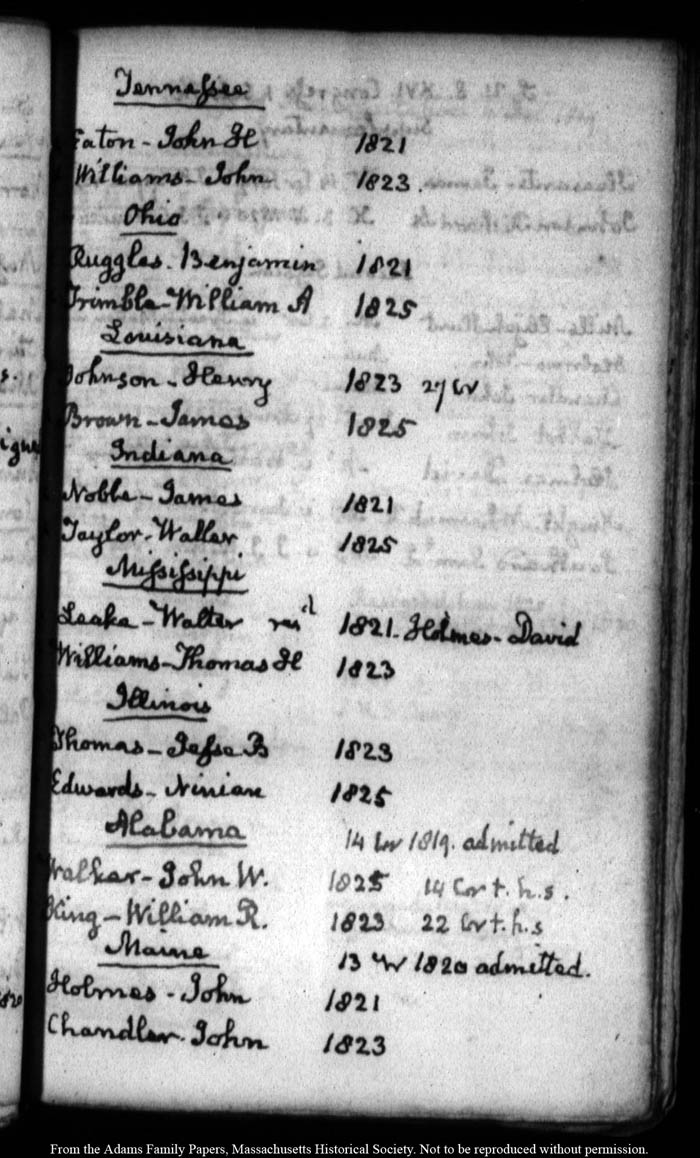 Tennessee
Eaton - John H 1821
Williams - John 1823.
Ohio
Ruggles. Benjamin 1821
Trimble - William A 1825
Louisiana
Johnson - Henry 1823 27
Brown - James 1825
Indiana
Noble - James 1821
Taylor - Waller. 1825
Mississippi
Leake - Walter res'd 1821. Holmes - David
Williams - Thomas H 1823
Illinois
Thomas - Jesse B 1823
Edwards - Ninian 1825
Alabama 14 1819. admitted
Walker - John W. 1825 14 t.h.s.
King - William R. 1823 22 t.h.s
Maine 13 1820 admitted.
Holmes - John 1821
Chandler. John 1823
From the Adams Family Papers, Massachusetts Historical Society. Not to be reproduced without permission.